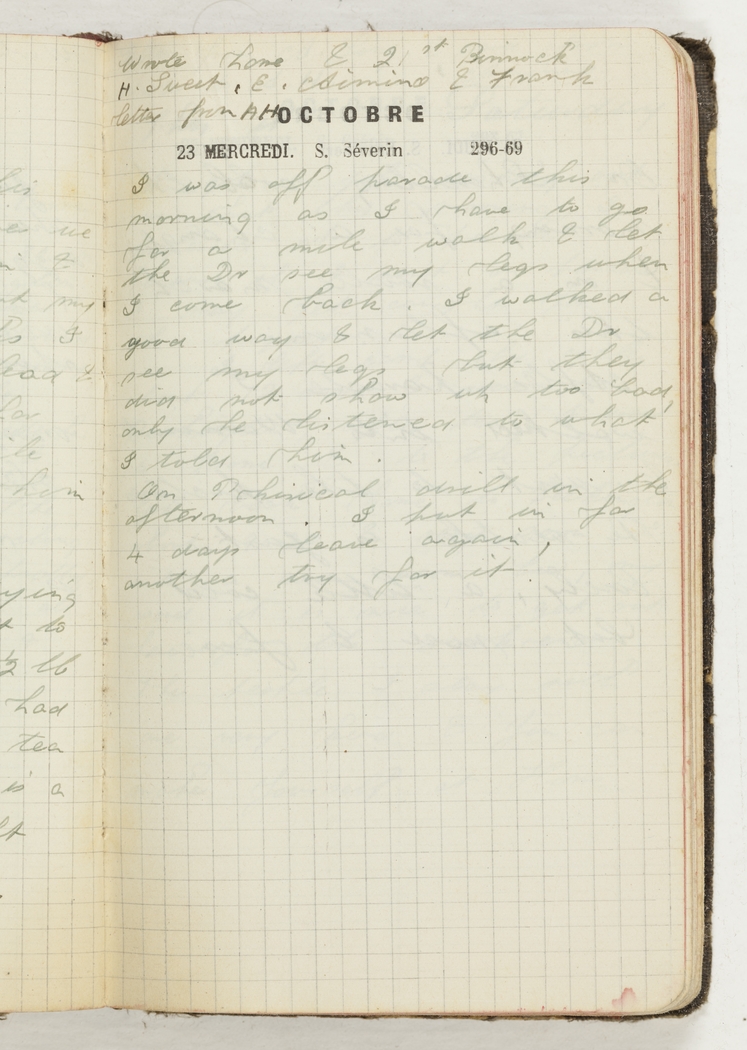 his
ue
n &
my
I
lead &
for
ile
him
ying
to
½ lb
had
tea
is a
Wrote home & 21st Pinnock
H. Sweet, E. & Frank
letter from AH
OCTOBRE
23 MERCREDI. S. Séverin 296-69
I was off parade this
morning as I have to go
for a mile walk & let
the Dr see my legs when
I come back. I walked a
good way & let the Dr
see my legs but they
did not show up too bad,
only he listened to what
I told him.
On Phisical drill in the
afternoon. I put in for
4 days leave again,
another try for it.